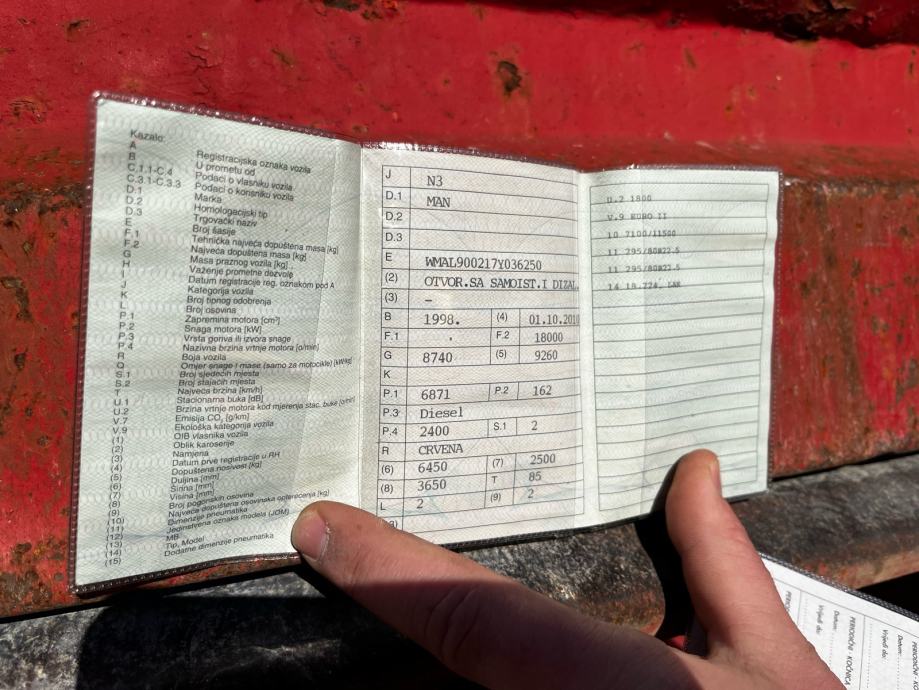 Kazalo:
A Registracijska oznaka vozila
B U prometu od
C.1.1-C.4 Podaci o vlasniku vozila
C.3.1-C.3.3 Podaci o korisniku vozila
D.1 Marka
D.2 Homologacijski tip
D.3 Trgovački naziv
E Broj šasije
F.1 Tehnička najveća dopuštena masa [kg]
F.2 Najveća dopuštena masa [kg]
G Masa praznog vozila [kg]
H Važenje prometne dozvole
I Datum registracije reg. oznakom pod A
J Kategorija vozila
K Broj tipnog odobrenja
L Broj osovina
P.1 Zapremina motora [cm³]
P.2 Snaga motora [kW]
P.3 Vrsta goriva ili izvora snage
P.4 Nazivna brzina vrtnje motora [o/min]
R Boja vozila
Q Omjer snage i mase (samo za motocikle) [kW/kg]
S.1 Broj sjedećih mjesta
S.2 Broj stajaćih mjesta
T Najveća brzina [km/h]
U.1 Stacionarna buka [dB]
U.2 Brzina vrtnje motora kod mjerenja stac. buke [o/min]
V.7 Emisija CO₂ [g/km]
V.9 Ekološka kategorija vozila
(1) OIB vlasnika vozila
(2) Oblik karoserije
(3) Namjena
(4) Datum prve registracije u RH
(5) Dopuštena nosivost [kg]
(6) Duljina [mm]
(7) Širina [mm]
(8) Visina [mm]
(9) Broj pogonskih osovina
(10) Najveća dopuštena osovinska opterećenja [kg]
(11) Dimenzije pneumatika
(12) Jedinstvena oznaka modela (JOM)
(13) MB
(14) Tip, Model
(15) Dodatne dimenzije pneumatika
J N3
D.1 MAN
D.2
D.3
E WMAL900217Y036250
(2) OTVOR.SA SAMOIST.I DIZAL.
(3) –
B 1998. (4) 01.10.2010
F.1 . F.2 18000
G 8740 (5) 9260
K
P.1 6871 P.2 162
P.3 Diesel
P.4 2400 S.1 2
R CRVENA
(6) 6450 (7) 2500
(8) 3650 T 85
L 2 (9) 2
U.2 1800
V.9 EURO II
10 7100/11500
11 295/80R22.5
11 295/80R22.5
14 18.224,
PERIODIČNI - KOČNICA
Datum:
Vrijedi do:
PERIODIČNI
Datum:
Vrijedi do: